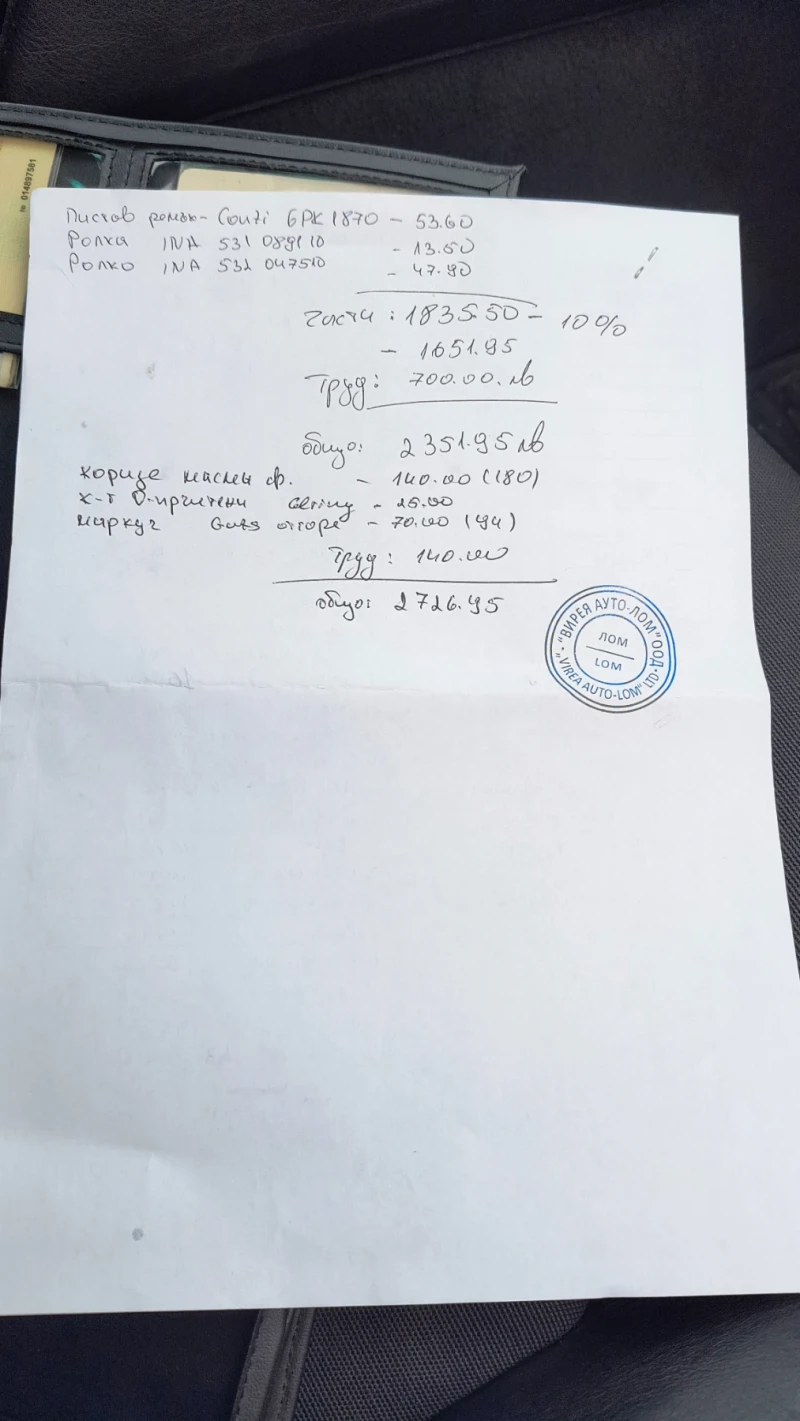 № 014897581
Пистов ремък - Conti 6PK 1870 - 53.60
Ролка INA 531 0891 10 - 13.50
Ролка INA 532 0475 10 - 47.90
Части: 1835.50 - 10%
- 1651.95
Труд: 700.00 лв
общо: 2351.95 лв
Корпус маслен ф. - 140.00 (180)
К-т О-пръстени Elring - 25.00
Маркуч Gates - 70.00 (94)
Труд: 140.00
общо: 2726.95
"ВИРЕЯ АУТО-ЛОМ" ООД
ЛОМ
LOM
"VIREA AUTO-LOM" LTD